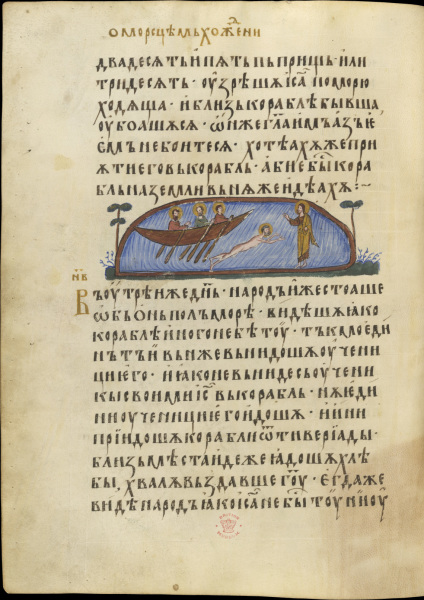 о морсцѣмь хожени
двадесѧть и пѧть пьприщь · или
тридесѧть · оузрѣшѫ іса по морю
ходѧща · и близь кораблѣ бывша
оубоашѫсѧ · ѡн же гла имъ азъ є
смъ не боитесѧ · хотѣахѫ же прі
ѧти его въ корабль · абие бы кора
бль на земли въ нѫже идѣахѫ :~
нв
Въ оутрѣи же днь · народъ иже стоаше
ѡб онь поль морѣ · видѣшѫ яко
кораблѣ иного не бѣ тоу · тъкмо еди
нъ тъи въ нь же вьнидошѫ оучени
ци его · и яко не вьниде сь оучени
кы своими іс въ корабль · нѫ еди
ни оученици его идошѫ · и ини
прїидошѫ корабли ѿ тиверїады ·
близь мѣста идеже ядошѫ хлѣ
бы, хвалѫ въздавше гоу · єгда же
видѣ народъ яко іса не бы тоу ни оу